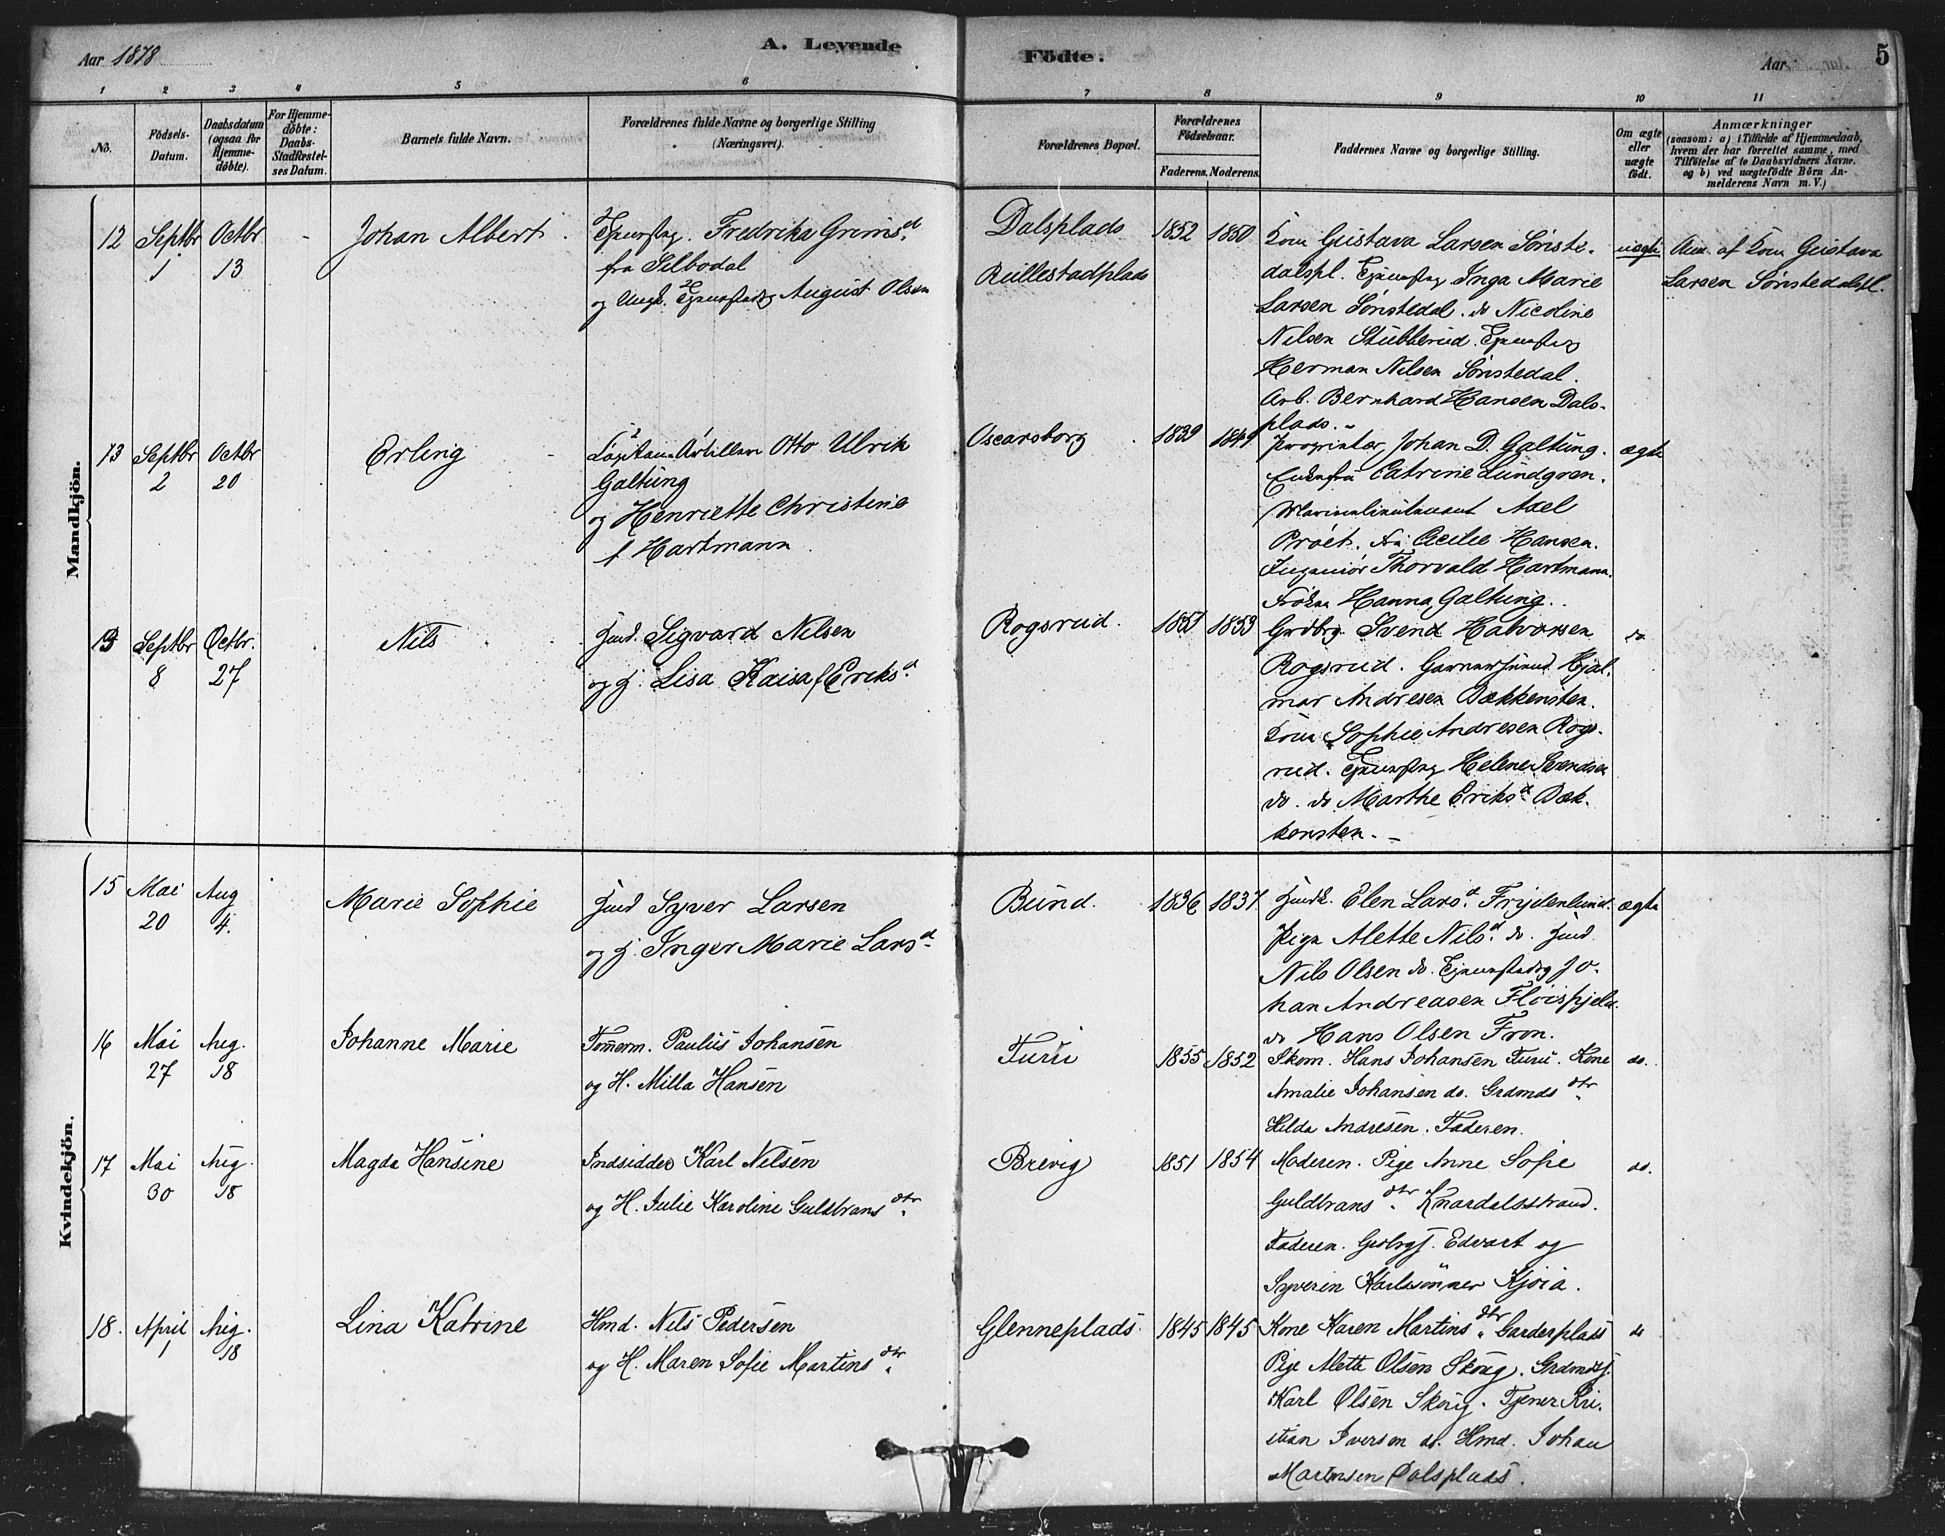 Aar 1878
A. Levende
Födte.
Aar
5
1 2 3 4 5 6 7 8 9 10 11
No.
Födsels-
Datum.
Daabsdatum
(ogsaa for
Hjemme-
döbte).
For Hjemme-
döbte:
Daabs-
Stadfæstel-
ses Datum.
Barnets fulde Navn.
Forældrenes fulde Navne og borgerlige Stilling
(Næringsvei).
Forældrenes Bopæl.
Forældrenes
Födselsaar.
Faderens. Moderens.
Faddernes Navne og borgerlige Stilling.
Om ægte
eller
uægte
födt.
Anmærkninger
(saasom: a) i Tilfælde af Hjemmedaab,
hvem der har forrettet samme, med
Tilföielse af to Daabsvidners Navne.
og b) ved uægtefödte Börn An-
melderens Navn m. V.)
Mandkjön.
12
Septbr
1
Octbr
13
Johan Albert
Fredrika Grimsd.
fra Silbodal
og August Olsen
Dalsplads
Rullestadplads
1852
1850
Kone Gustava Larsen Sønste-
dalspl. Inga Marie
Larsen Sønstedal. do Nicoline
Nilsen Stubberud.
Herman Nilsen Sønstedal.
Arb. Bernhard Hansen Dals-
plads.
uægte
Anm. af Kone Gustava
Larsen Sønstedalspl.
13
Septbr
2
Octbr
20
Erling
Otto Ulrik
Galtung
og Henriette Christine
f Hartmann
Oscarsborg
1839
1849
Proprietær Johan D. Galtung.
Enkefru Catrine Lundgren.
Marinelieutenant Axel
Prøet. Fru Cecilie Hansen.
Ingeniør Thorvald Hartmann.
Frøken Hanna Galtung.
ægte
Septbr
8
Octbr.
27
Nils
Sigvard Nilsen
og Lisa Kaisa f Eriksd.
Rogsrud.
1853
Grdbr. Svend Halvorsen
Rogsrud. Hjal-
mar Andresen Bækkensten.
Kone Sophie Andresen Rogs-
rud. Helene Svendsen
do. do Marthe Eriksd. Bæk-
kensten.
do
Kvindekjön.
15
Mai
20
Aug
4.
Marie Sophie
Syver Larsen
og Inger Marie Larsd.
Bund.
1836
1837
Elen Larsd. Frydenlund.
Pige Alette Nilsd. do.
Nils Olsen do. Jo-
han Andreasen Fløispjeld.
do Hans Olsen Fron.
ægte
16
Mai
27
Aug.
18
Johanne Marie
Tømerm. Paulus Johansen
og H. Milla Hansen
Furu
1855
1852
Skom. Hans Johansen Furu. Kone
Amalie Johansen do. Grdmds dtr.
Hilda Andresen. Faderen.
do.
17
Mai
30
Aug.
18
Magda Hansine
Indsidder Karl Nilsen
og H. Julie Karoline Guldbrans dtr.
Brevig
1851
1854
Moderen. Pige Anne Sofie
Guldbrans dtr. Knardalsstrand.
Faderen. Edvart og
Syverin Karlssønner Kjøia.
do.
18.
April
1
Aug.
18
Lina Katrine
Hmd. Nils Pedersen
og H. Maren Sofie Martins dtr.
Glenneplads.
1845
1845
Kone Karen Martins dtr. Garderplads
Pige Alette Olsen Skoug.
Karl Olsen Skoug. Tjener Kri-
stian Iversen do. Hmd. Johan
Martinsen Dalsplads.
do